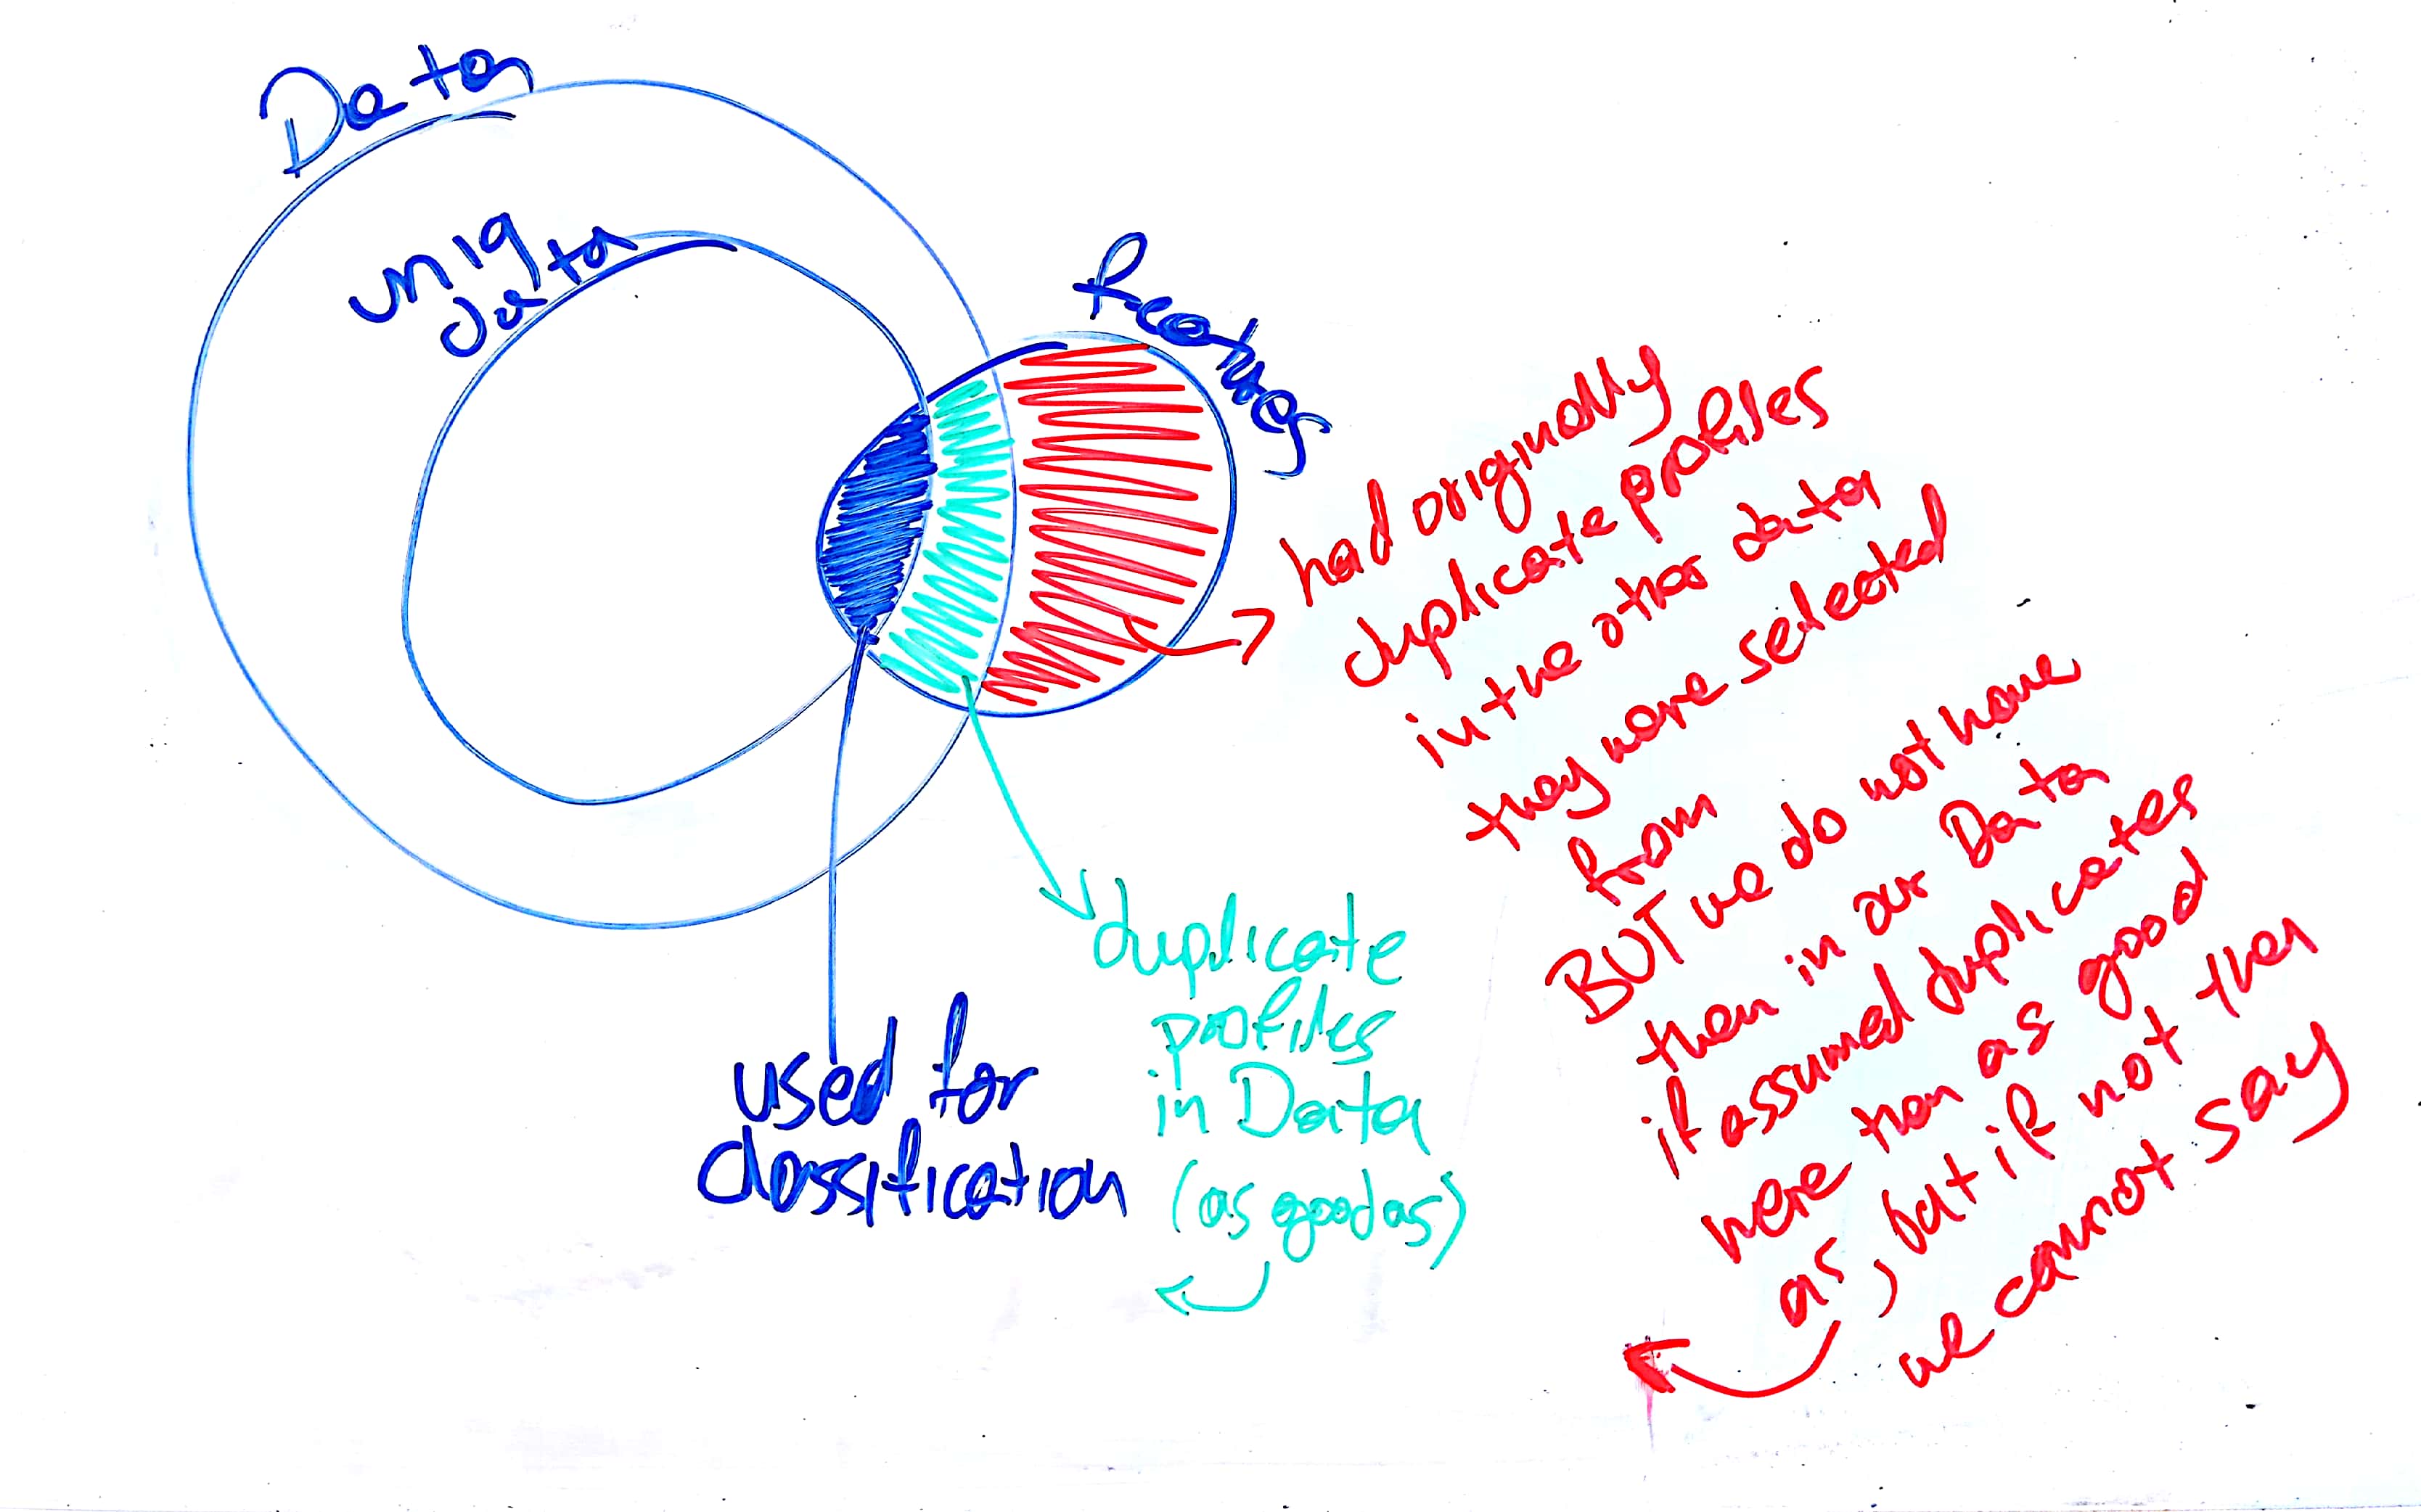 Data
uniq
data
features
had originally
duplicate profiles
in the other data
they were selected
from
BUT we do not have
them in our Data
if assumed duplicates
here then as good
as, but if not then
we cannot say
duplicate
profiles
in Data
(as good as)
used for
classification